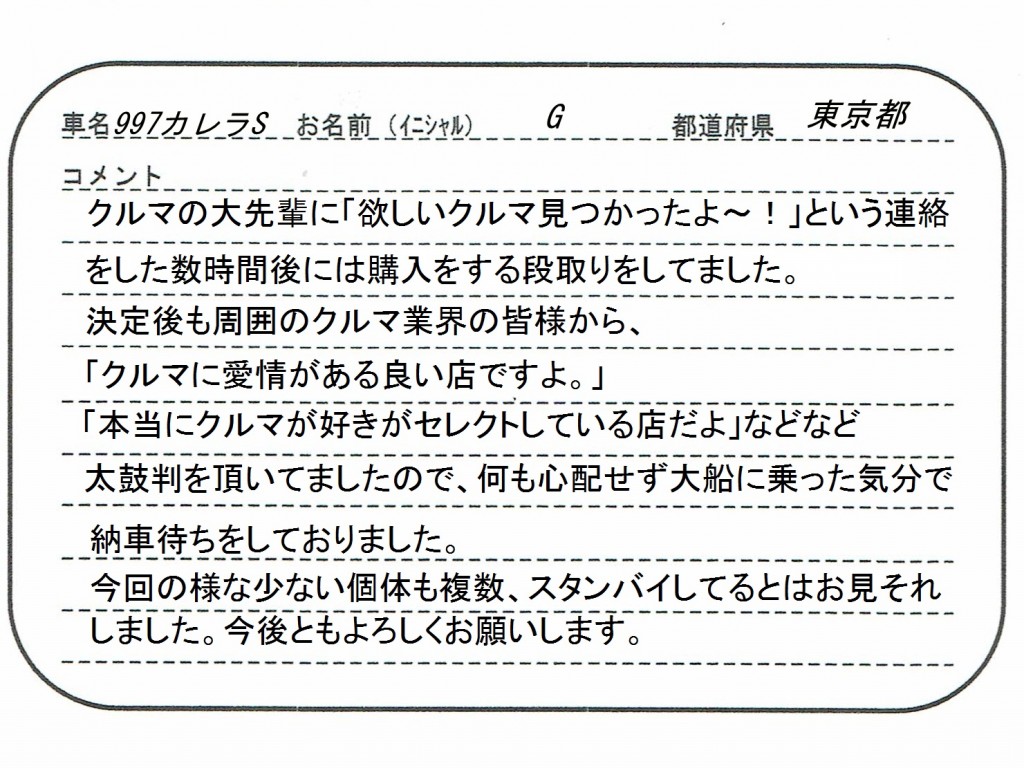 車名 997カレラS お名前(ｲﾆｼｬﾙ) G 都道府県 東京都
コメント
クルマの大先輩に「欲しいクルマ見つかったよ～！」という連絡
をした数時間後には購入をする段取りをしてました。
決定後も周囲のクルマ業界の皆様から、
「クルマに愛情がある良い店ですよ。」
「本当にクルマが好きがセレクトしている店だよ」などなど
太鼓判を頂いてましたので、何も心配せず大船に乗った気分で
納車待ちをしておりました。
今回の様な少ない個体も複数、スタンバイしてるとはお見それ
しました。今後ともよろしくお願いします。